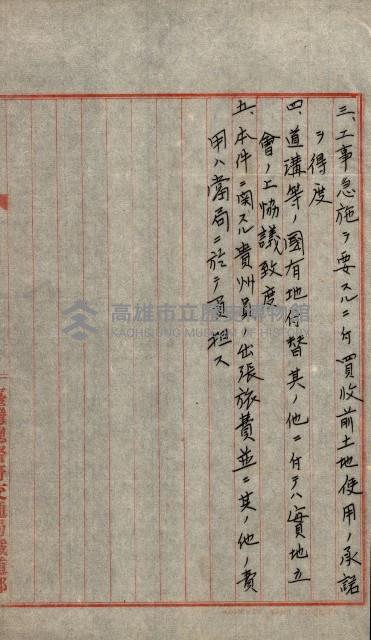 三、工事急施ヲ要スルニ付買收前土地使用ノ承諾
ヲ得度
四、道溝等ノ國有地付替其ノ他ニ付テハ實地立
會ノ上協議致度
五、本件ニ関スル貴州員ノ出張旅費並ニ其ノ他ノ費
用ハ當局ニ於テ負担ス
臺灣總督府交通局鐵道部
高雄市立歷史博物館
KAOHSIUNG MUSEUM OF HISTORY